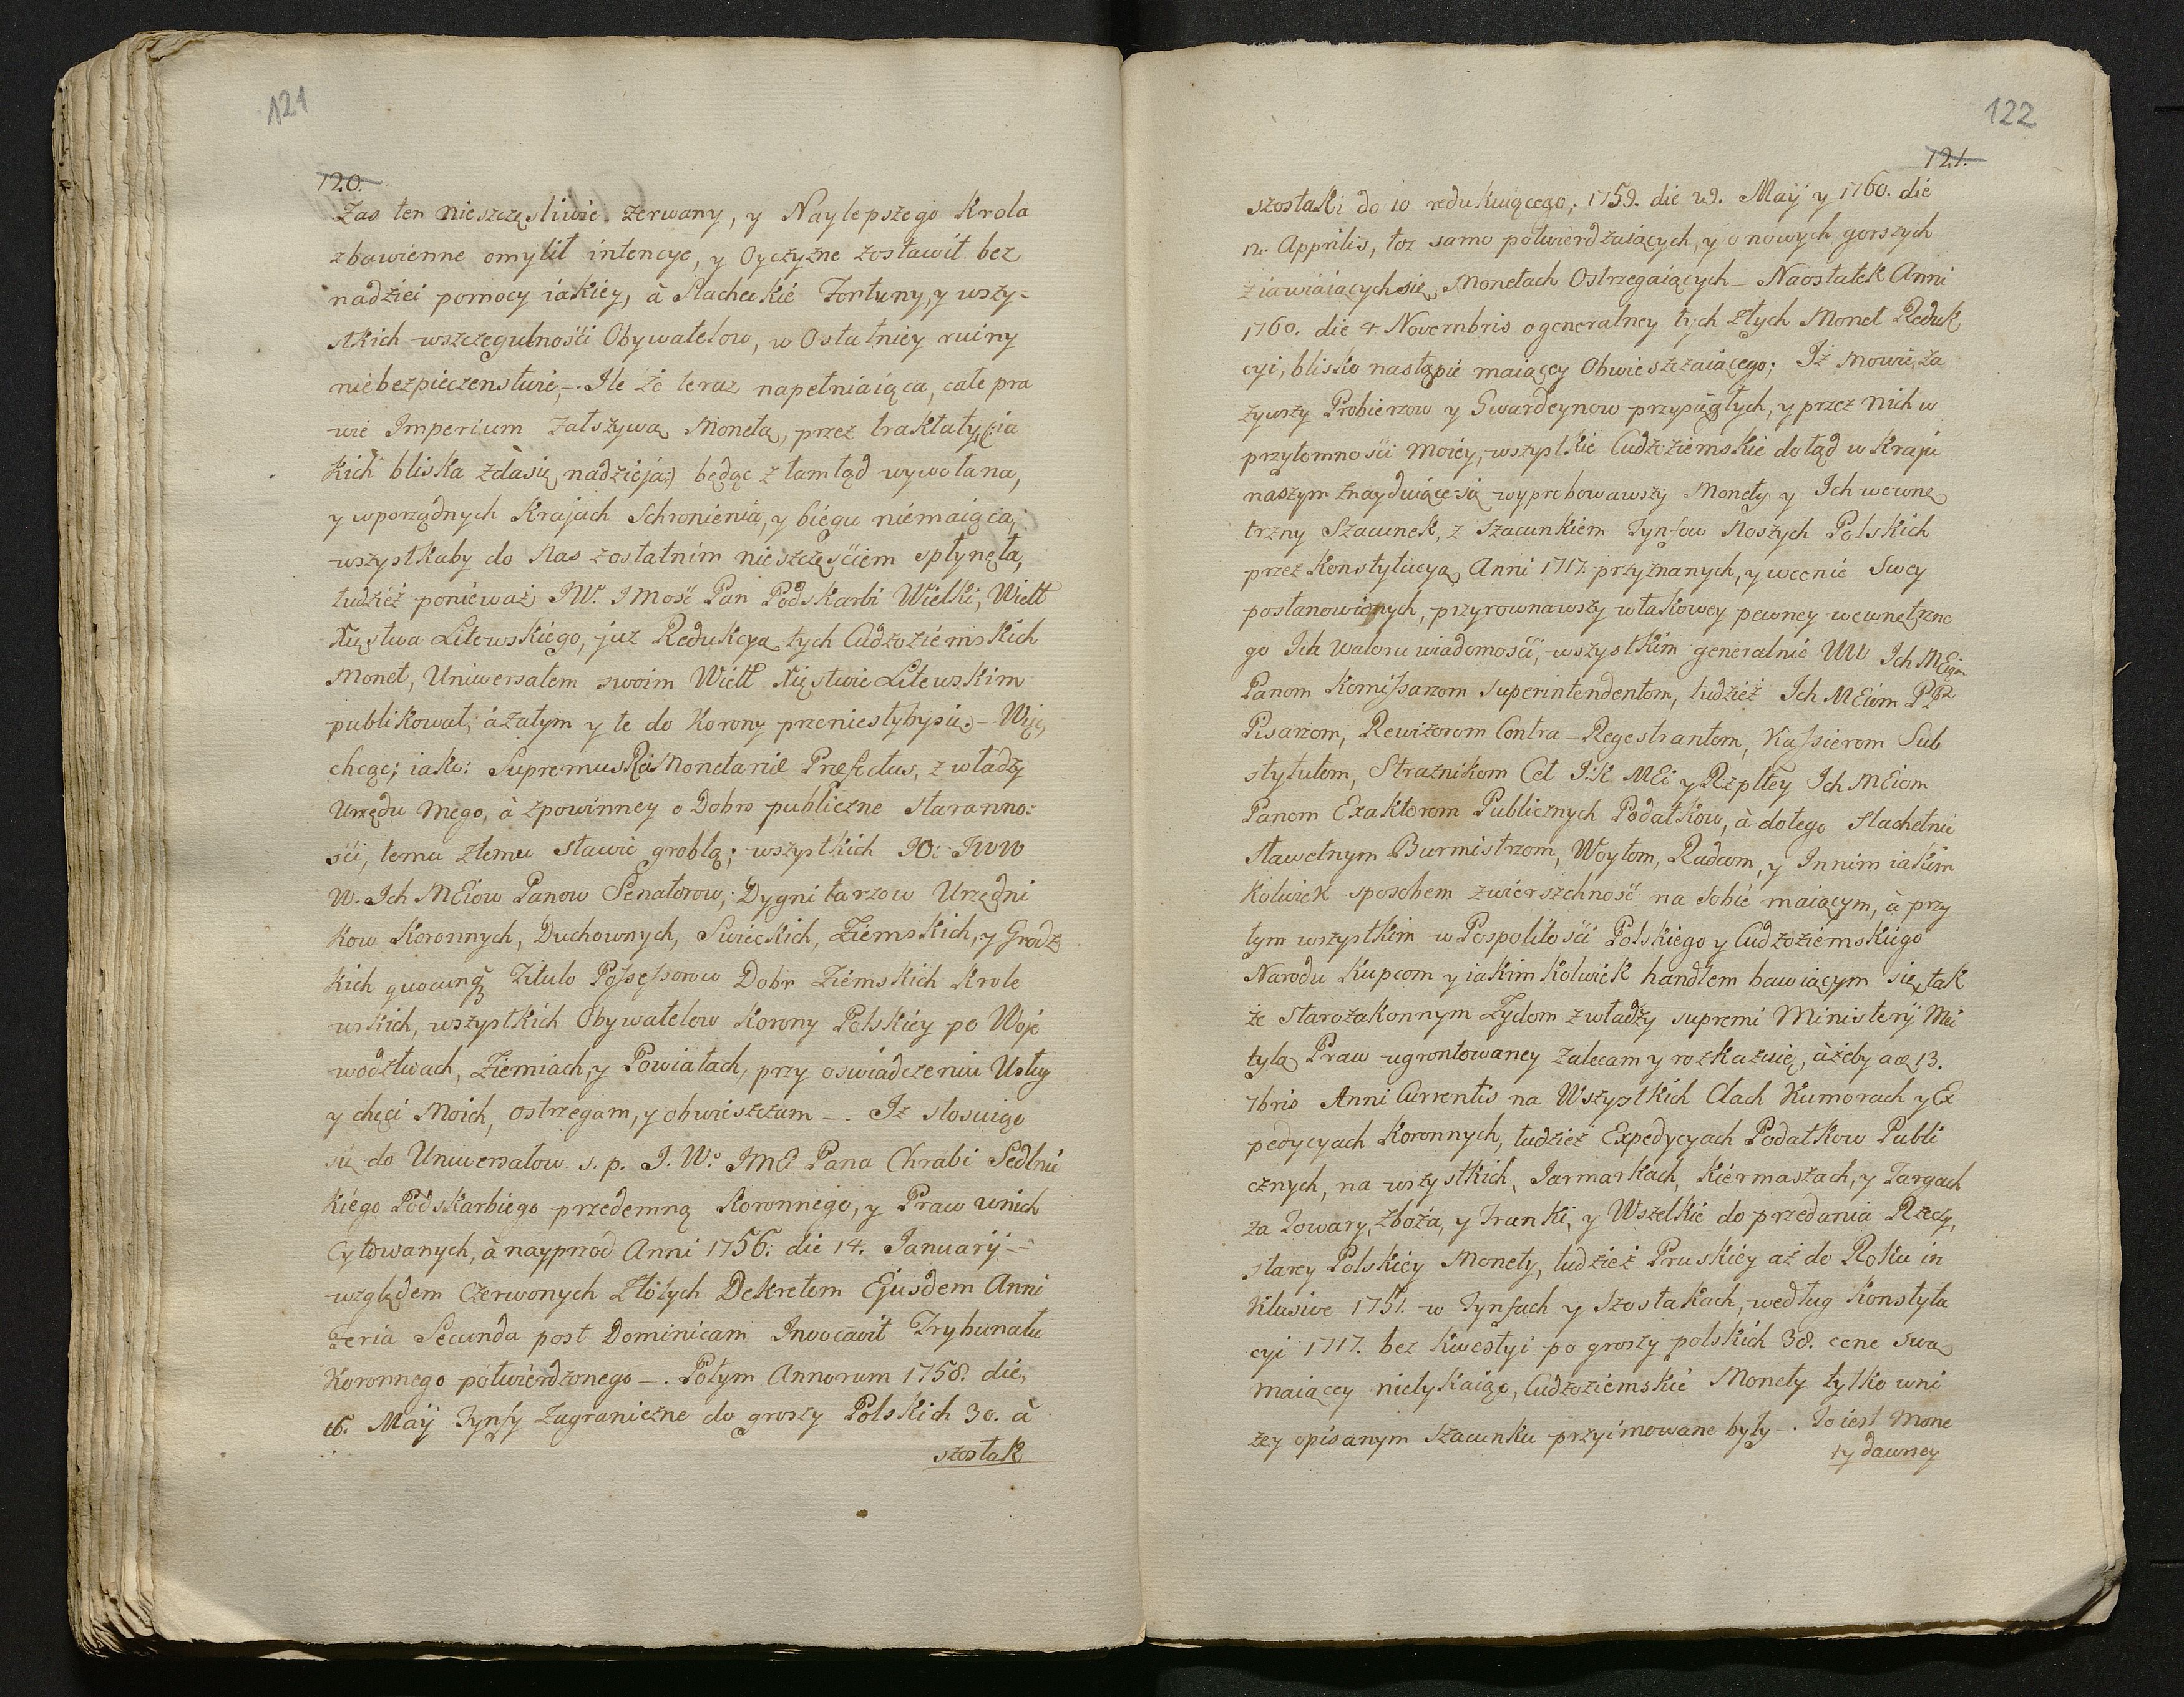 121
120.
Zas ten nieszczęsliwie zerwany, y Naylepszego Krola
zbawienne omylił intencye, y Oyczyzne zostawił bez
nadziei pomocy iakiéy, à Slacheckié Fortuny, y wszy=
stkich wszczegulnośći Obywatelow, w Ostatniéy ruiny
niébezpieczenstwié,–. Ile że teraz napełniaiąca, całe pra
wié Imperium Fałszywa Moneta, przez traktaty, (:ia
kich bliska zdasię nadzieja:) będąc z tamtąd wywołana,
y wporządnych Krajach Schroniénia, y biégu niémaiąca,
wszystkaby do Nas zostatnim nieszczęśćiem spłynęła,
tudziéż poniéważ JW. JMość Pan Podskarbi Wielki, Wielł
Xięstwa Litewskiégo, juz Redukcyą tych Cudzoziémskich
Monet, Uniwersałem swoim Wielł Xięstwie Litewskim
publikował; àzatym y te do Korony przeniesłybysię.– Więc
chcąc; iako: Supremus Rei Monetariæ Præfectus, z władzy
Urzędu mego, à zpowinney o Dobro publiczne staranno=
śći, temu złemu stawić groblą; wszystkich JO: JWW
W. Ich MEiow Panow Senatorow; Dygnitarzow Urzędni
kow Koronnych, Duchownych, Swiéckich, Ziémskich, y Grodz
kich quocunq; Titulo Possessorow Dobr Ziémskich Krole
wskich, wszystkich Obywatelow Korony Polskiéy po Woje
wodztwach, Ziemiach, y Powiatach, przy oswiadczeniu Usług
y chęci Moich, ostrzegam, y obwieszczam –. Iż stosuiąc
się do Uniwersałow s. p. J. W. JMEi Pana Chrabi Sedlnic
kiégo Podskarbiego przedemną Koronnego, y Praw wnich
Cytowanych, à nayprzod Anni 1756. die 14. Januarij –
względem Czerwonych Złotych Dekretem Ejusdem Anni
Feria Secunda post Dominicam Invocavit Trybunału
Koronnego potwiérdzonego –. Potym Annorum 1758. die,
16. Maÿ Tynfy Zagraniczne do groszy Polskich 30. à
szostak
122
121.
szostaki do 10 redukuiącego; 1759. die 29. Maÿ y 1760. die
12. Apprilis, toz samo potwierdzaiących, y o nowych gorszych
ziawiaiących się Monetach Ostrzegaiących – Naostatek Anni
1760. die 4. Novembris o generalney tych złych Monet Reduk
cyi, blisko nastąpić maiącey Obwieszczaiącego; Iż mowię, za
żywszy Probierzow y Gwardeynow przysięgłych, y przez nich w
przytomnośći moiéy, wszystkié Cudzoziémskié dotąd w kraju
naszym znayduiące się wyprobowawszy Monety y Ich wewnę
trzny Szacunek, z szacunkiem Tynfow Naszych Polskich
przez Konstytucyą Anni 1717. przyznanych, y wcenie Swey
postanowionych, przyrownawszy w takowey pewney wewnętrzne
go Ich waloru wiadomośći, wszystkim generalnié WW Ich MEiom
Panom Komissarzom Superintendentom, tudzież Ich MEiom PP
Pisarzom, Rewizorom Contra–Regestrantom, Kassierom Sub
stytutom, Straznikom Ceł J:K MEi y Rzpltey Ich MEiom
Panom Exaktorom Publicznych Podatkow, à dotego Slachetnié
sławetnym Burmistrzom, Woytom, Radcom, y Innim iakim
kolwiek sposobem zwierszchność na sobié maiącym, à przy
tym wszystkim w Pospolitośći Polskiégo y Cudzoziémskiégo
Narodu Kupcom y iakimkolwiék handlem bawiącym się, tak
że Starozakonnym Zydom z władzy supremi Ministerÿ Mei
tylą Praw ugrontowaney Zalecam y rozkazuię, àżeby a die 13.
7bris Anni Currentis na Wszystkich Cłach Kumorach y Ex
pedycyach Koronnych, tudzież Expedycyach Podatkow Publi
cznych, na wszystkich, Iarmarkach, Kiérmaszach, y Targach
za Towary, zboża, y Trunki, y Wszelkié do przedania Rzeczy,
starey Polskiéy Monety, tudziéż Pruskiéy aż do Roku in
klusive 1751. w Tynfach y Szostakach, według Konstytu
cyi 1717. bez Kwestyi po groszy polskich 38. cene swą
maiącey nietykaiąc, Cudzoziémskié Monety tylko wni
żey opisanym szacunku przyimowane były –. To iest Mone
ty dawney